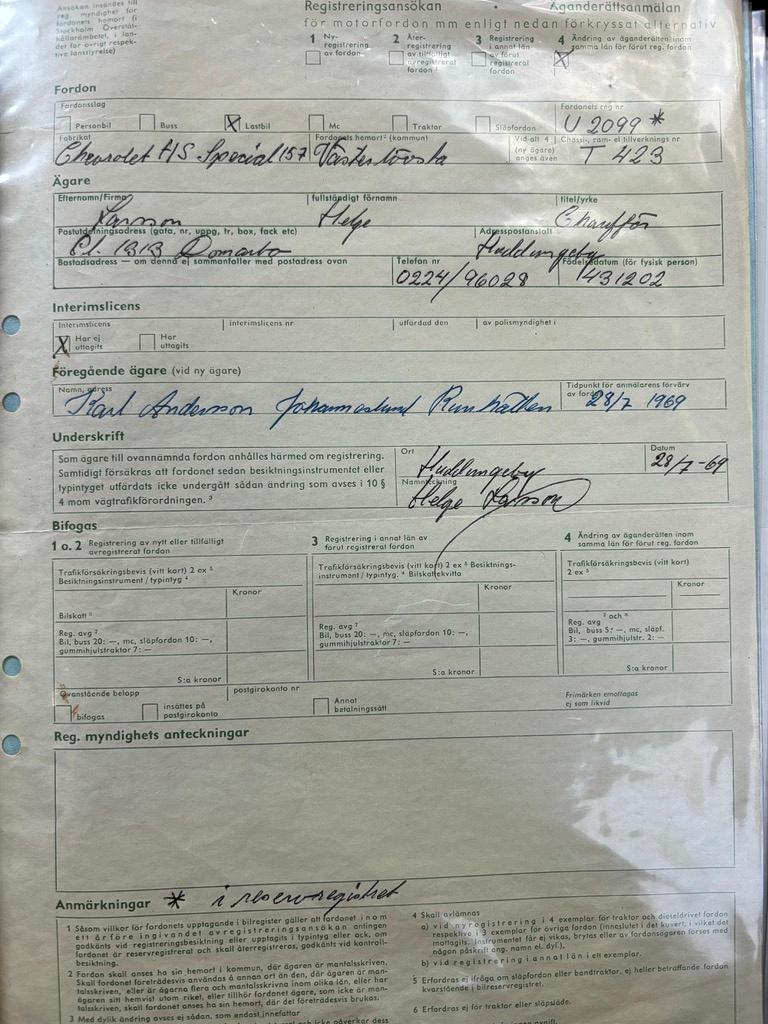 Ansökan insändes till
reg. myndighet för
fordonets hemort (i
Stockholm Överståt-
hållarämbetet, i lan-
det för övrigt respek-
tive länsstyrelse)
Registreringsansökan Äganderättsanmälan
för motorfordon mm enligt nedan förkryssat alternativ
1 Ny-
registrering
av fordon
2 Åter-
registrering
av tillfälligt
avregistrerat
fordon
3 Registrering
i annat län
av förut
registrerat
fordon
4 Ändring av äganderätten inom
samma län för förut reg. fordon
X
Fordon
Fordonsslag Fordonets reg nr
Personbil Buss X Lastbil Mc Traktor Släpfordon U 2099 *
Fabrikat Fordonets hemort² (kommun) Vid alt 4 (ny ägare) anges även Chassi-, ram- el tillverknings nr
Chevrolet H/S Special 157 Västerlövsta T 423
Ägare
Efternamn/Firma fullständigt förnamn titel/yrke
Larsson Helge Chaufför
Postutdelningsadress (gata, nr, uppg, tr, box, fack etc) Adresspostanstalt
Pl. 1313 Domarbo Huddungeby
Bostadsadress — om denna ej sammanfaller med postadress ovan Telefon nr Födelsedatum (för fysisk person)
0224/96028 431202
Interimslicens
Interimslicens interimslicens nr utfärdad den av polismyndighet i
X Har ej uttagits Har uttagits
Föregående ägare (vid ny ägare)
Namn, adress Tidpunkt för anmälarens förvärv
av fordonet
Karl Andersson Johanneslund Runhällen 28/7 1969
Underskrift
Som ägare till ovannämnda fordon anhålles härmed om registrering.
Samtidigt försäkras att fordonet sedan besiktningsinstrumentet eller
typintyget utfärdats icke undergått sådan ändring som avses i 10 §
4 mom vägtrafikförordningen. ³
Ort Datum
Huddungeby 28/7-69
Namnteckning
Helge Larsson
Bifogas
1 o. 2 Registrering av nytt eller tillfälligt
avregistrerat fordon
3 Registrering i annat län av
förut registrerat fordon
4 Ändring av äganderätten inom
samma län för förut reg. fordon
Trafikförsäkringsbevis (vitt kort) 2 ex ⁵
Besiktningsinstrument / typintyg ⁴
Kronor
Bilskatt ⁶
Reg. avg ⁷
Bil, buss 20: —, mc, släpfordon 10: —,
gummihjulstraktor 7: —
S:a kronor
Trafikförsäkringsbevis (vitt kort) 2 ex ⁵ Besiktnings-
instrument / typintyg. ⁴ Bilskattekvitto
Kronor
Reg. avg ⁷
Bil, buss 20: —, mc, släpfordon 10: —,
gummihjulstraktor 7: —
S:a kronor
Trafikförsäkringsbevis (vitt kort)
2 ex ⁵
Kronor
Reg. avg ⁷ och ⁸
Bil, buss 5: —, mc, släpf.
3: —, gummihjulstr. 2: —
S:a kronor
Ovanstående belopp postgirokonto nr
bifogas insättes på
postgirokonto
Annat
betalningssätt
Frimärken emottagas
ej som likvid
Reg. myndighets anteckningar
Anmärkningar * i reservregistret
1 Såsom villkor för fordonets upptagande i bilregister gäller att fordonet inom
ett år före ingivandet av registreringsansökan antingen
godkänts vid registreringsbesiktning eller upptagits i typintyg eller ock, om
fordonet är reservregistrerat och skall återregistreras, godkänts vid kontroll-
besiktning.
2 Fordon skall anses ha sin hemort i kommun, där ägaren är mantalsskriven.
Skall fordonet företrädesvis användas å annan ort än den, där ägaren är man-
talsskriven, eller är ägarna flera och mantalsskrivna inom olika län, eller har
ägaren sitt hemvist utom riket, eller tillhör fordonet ägare, som icke är man-
talsskriven, skall fordonet anses ha sin hemort, där det företrädesvis brukas.
3 Med dylik ändring avses ej sådan, som endast innefattar
4 Skall avlämnas
a) vid nyregistrering i 4 exemplar för traktor och dieseldrivet fordon
respektive i 3 exemplar för övriga fordon (inneslutet i det kuvert, i vilket det
mottagits. Instrumentet får ej vikas, brytas eller av fordonsägaren förses med
någon påskrift ang. namn el. dyl.).
b) vid registrering i annat län i ett exemplar.
5 Erfordras ej ifråga om släpfordon eller bandtraktor, ej heller beträffande fordon
kvarstående i bilreservregistret.
6 Erfordras ej för traktor eller släpsläde.